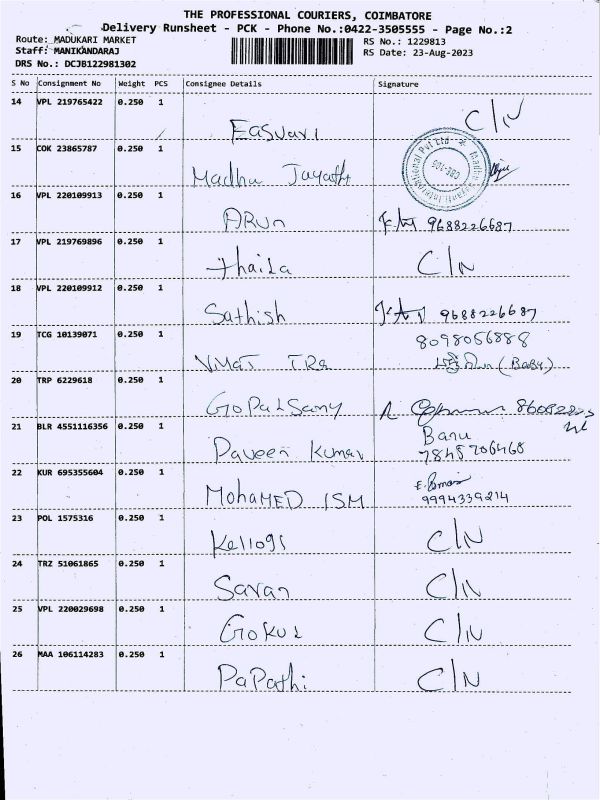 THE PROFESSIONAL COURIERS, COIMBATORE
Delivery Runsheet - PCK - Phone No.:0422-3505555 - Page No.:2
Route: MADUKARI MARKET
RS No.: 1229813
Staff: MANIKANDARAJ
RS Date: 23-Aug-2023
DRS No.: DCJB122981302
S No Consignment No Weight PCS Consignee Details Signature
14 VPL 219765422 0.250 1 Easwari C/N
15 COK 23865787 0.250 1 Madhu Jayathi
16 VPL 220109913 0.250 1 ARUn 9688226687
17 VPL 219769896 0.250 1 thaila C/N
18 VPL 220109912 0.250 1 Sathish 9688226687
19 TCG 10139071 0.250 1 VMAT TRa 8098056888
(Baby)
20 TRP 6229618 0.250 1 GoPalSamy
21 BLR 4551116356 0.250 1 Paveen Kumar Banu
7845206468
22 KUR 695355604 0.250 1 MohaMED ISM
9994339214
23 POL 1575316 0.250 1 Kellogs C/N
24 TRZ 51061865 0.250 1 Savan C/N
25 VPL 220029698 0.250 1 GoKul C/N
26 MAA 106114283 0.250 1 PaPathi C/N